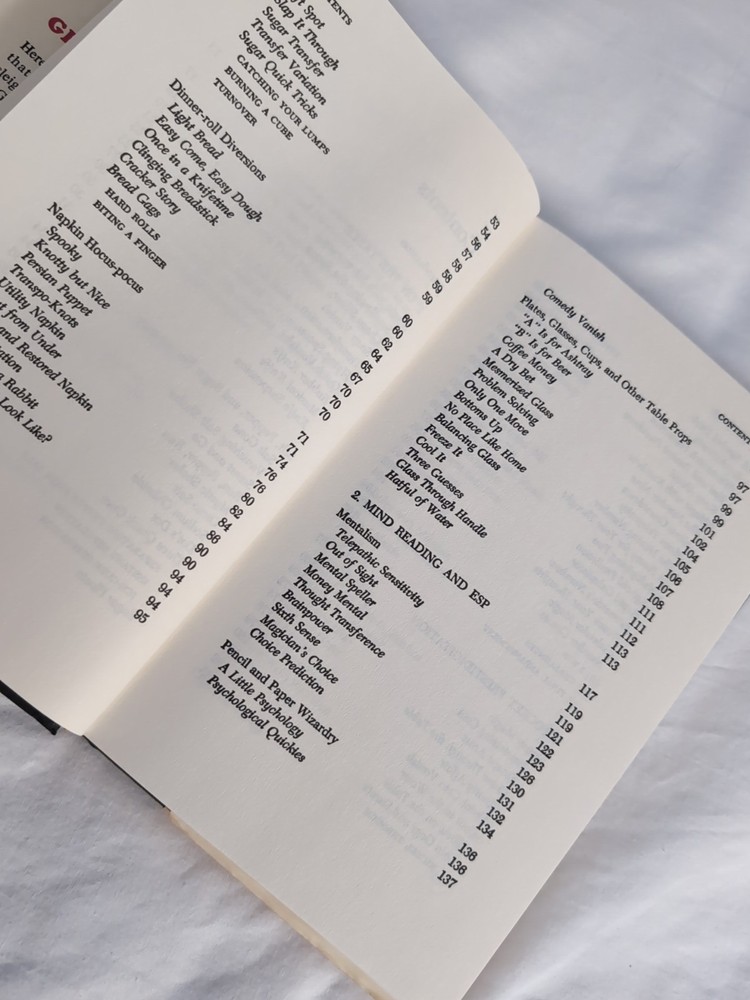 TENTS
ft Spot
Slap It Through
Sugar Transfer
Transfer Variation
Sugar Quick Tricks
CATCHING YOUR LUMPS
BURNING A CUBE
TURNOVER
Dinner-roll Diversions
Light Bread
Easy Come, Easy Dough
Once in a Knifetime
Clinging Breadstick
Cracker Story
Bread Gags
HARD ROLLS
BITING A FINGER
Napkin Hocus-pocus
Spooky
Knotty but Nice
Persian Puppet
Transpo-Knots
Utility Napkin
from Under
and Restored Napkin
Rabbit
Look Like?
53
54
56
57
58
58
59
59
60
60
62
64
65
67
70
70
70
71
71
74
76
76
80
82
84
86
90
90
94
94
95
CONTEN
Comedy Vanish
Plates, Glasses, Cups, and Other Table Props
"A" Is for Ashtray
"B" Is for Beer
Coffee Money
A Dry Bet
Mesmerized Glass
Problem Solving
Only One Move
Bottoms Up
No Place Like Home
Balancing Glass
Freeze It
Cool It
Three Guesses
Glass Through Handle
Hatful of Water
2. MIND READING AND ESP
Mentalism
Telepathic Sensitivity
Out of Sight
Mental Speller
Money Mental
Thought Transference
Brainpower
Sixth Sense
Magician's Choice
Choice Prediction
Pencil and Paper Wizardry
A Little Psychology
Psychological Quickies
97
97
99
99
101
102
104
105
106
107
108
111
111
112
113
113
117
119
119
121
122
123
126
130
131
132
134
136
136
137